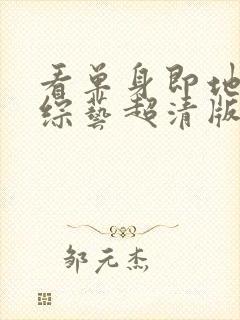 看单身即地
综艺超清版
邹元杰